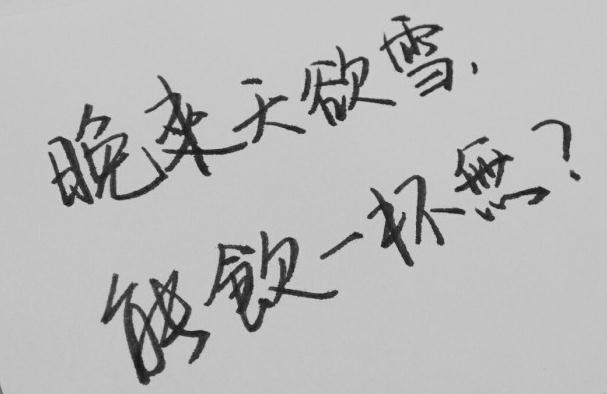 晚来天欲雪.
能飲一杯無?